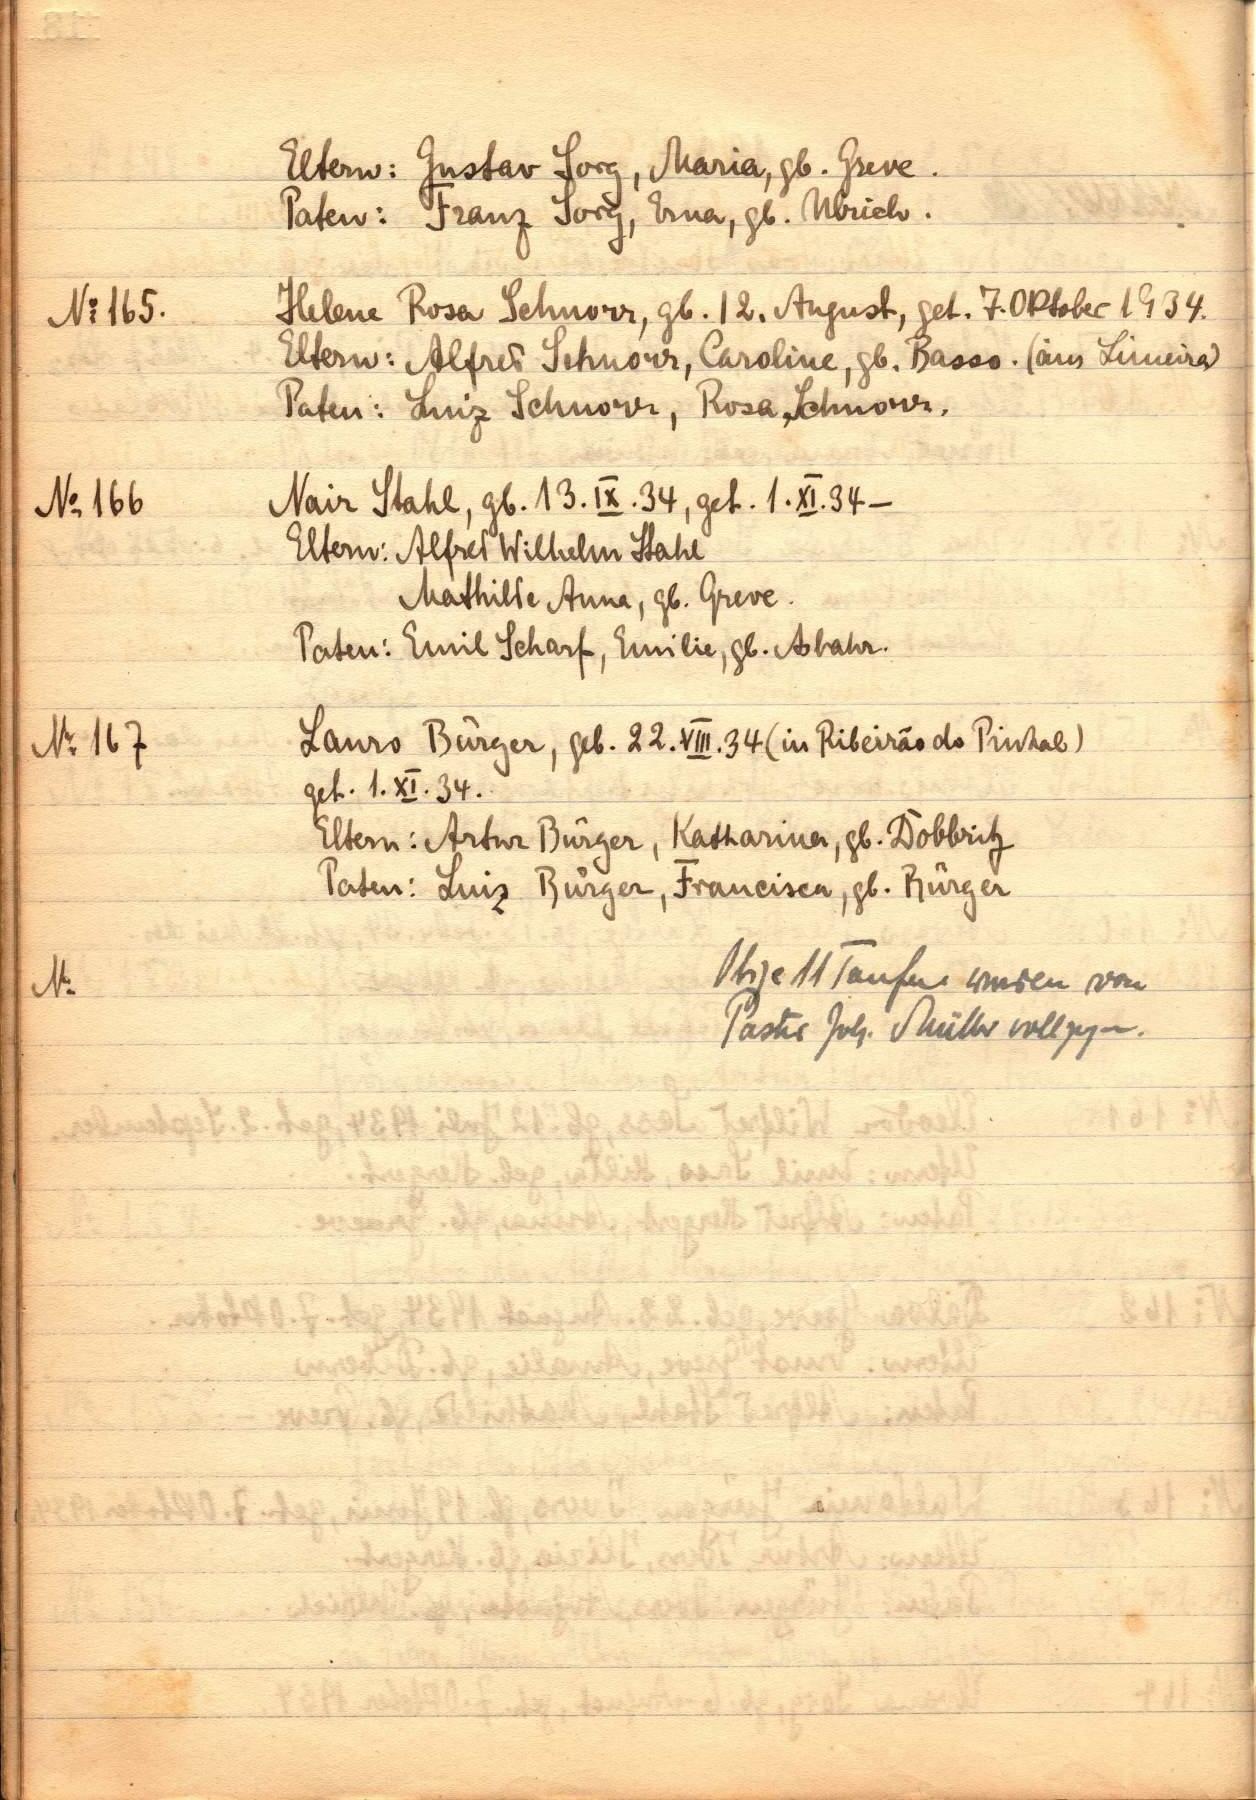 Eltern: Gustav Sorg, Maria, gb. Greve.
Paten: Franz Sorg, Erna, gb. Ulrich.
No 165. Helene Rosa Schnorr, gb. 12. August, get. 7. Oktober 1934.
Eltern: Alfred Schnorr, Caroline, gb. Basso. (aus Limeira)
Paten: Luiz Schnorr, Rosa Schnorr.
No 166 Nair Stahl, gb. 13. IX. 34, get. 1. XI. 34 –
Eltern: Alfred Wilhelm Stahl
Mathilde Anna, gb. Greve.
Paten: Emil Scharf, Emilie, gb. Asbahr.
No 167 Lauro Bürger, geb. 22. VIII. 34 (in Ribeirão do Pinhal)
get. 1. XI. 34.
Eltern: Artur Bürger, Katharina, gb. Dobbritz
Paten: Luiz Bürger, Francisca, gb. Bürger
No Obige 11 Taufen wurden von
Pastor Joh. Müller vollzogen.